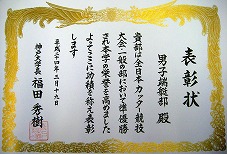 表彰状
男子端艇部 殿
貴部は全日本カッター競技
大会一般の部において準優勝
され本学の栄誉を高めました
よってここに功績を称え表彰
します
平成二十四年三月十九日
神戸大学長 福田秀樹